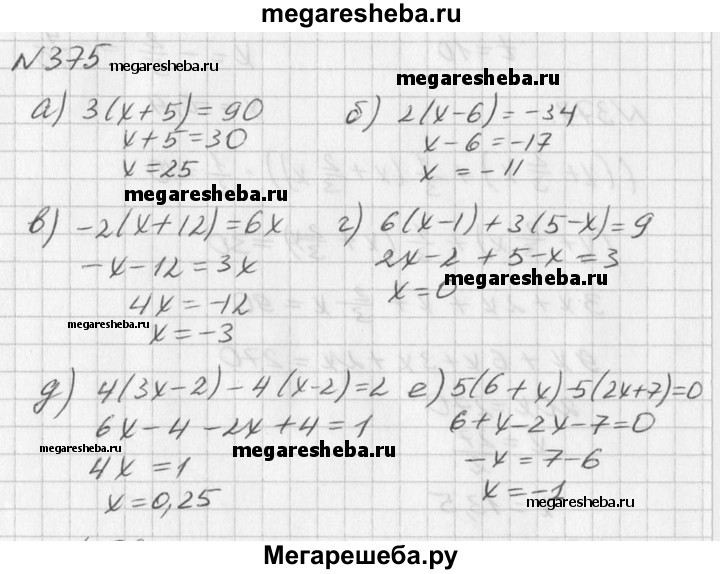 megaresheba.ru
№375 megaresheba.ru
а) 3(x+5)=90
x+5=30
x=25
megaresheba.ru
б) 2(x-6)=-34
x-6=-17
x=-11
megaresheba.ru
в) -2(x+12)=6x
-x-12=3x
4x=-12
megaresheba.ru
x=-3
г) 6(x-1)+3(5-x)=9
2x-2+5-x=3
megaresheba.ru
x=0
д) 4(3x-2)-4(x-2)=2
megaresheba.ru
6x-4-2x+4=1
megaresheba.ru
4x=1
x=0,25
е) 5(6+x)-5(2x+7)=0
6+x-2x-7=0
-x=7-6
x=-1
megaresheba.ru
Мегарешеба.ру